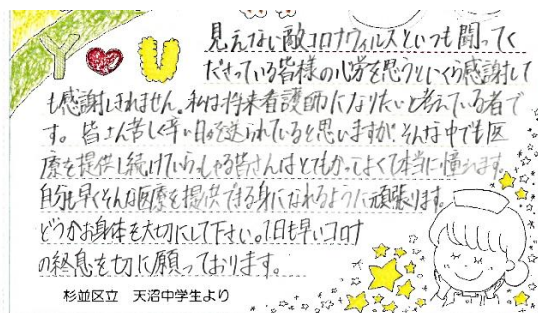 Y ♥ U
見えない敵コロナウィルスといつも闘ってく
ださっている皆様の心労を思うといくら感謝して
も感謝しきれません。私は将来看護師になりたいと考えている者で
す。皆さん苦しく辛い日を送られていると思いますが、そんな中でも医
療を提供し続けていらっしゃる皆さんはとてもかっこよくて本当に憧れます。
自分も早くそんな医療を提供できる身になれるように頑張ります。
どうかお身体を大切にして下さい。1日も早いコロナ
の終息を切に願っております。
杉並区立 天沼中学生より